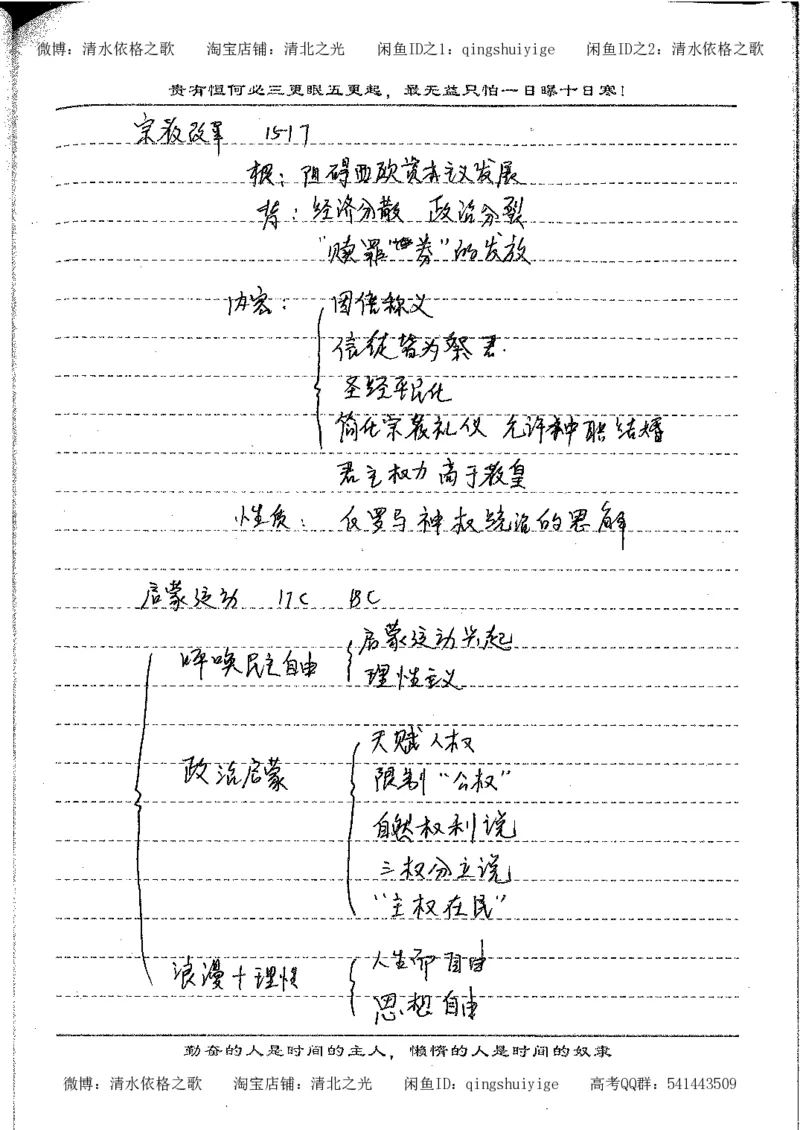 微博：清水依格之歌 淘宝店铺：清北之光 闲鱼ID之1：qingshuiyige 闲鱼ID之2：清水依格之歌
贵有恒何必三更眠五更起，最无益只怕一日曝十日寒！
宗教改革 1517
根：阻碍西欧资本主义发展
背：经济分散 政治分裂
“赎罪券”的发放
内容：因信称义
信徒皆为祭君.
圣经平民化
简化宗教礼仪 允许神职结婚
君主权力高于教皇
性质：仅罗马神权统治的思解
启蒙运动 17C 18C
呼唤民主自由 启蒙运动兴起
理性主义
政治启蒙 天赋人权
限制“公权”
自然权利说
三权分立说
“主权在民”
浪漫+理性 人生而自由
思想自由
勤奋的人是时间的主人，懒惰的人是时间的奴隶
微博：清水依格之歌 淘宝店铺：清北之光 闲鱼ID：qingshuiyige 高考QQ群：541443509